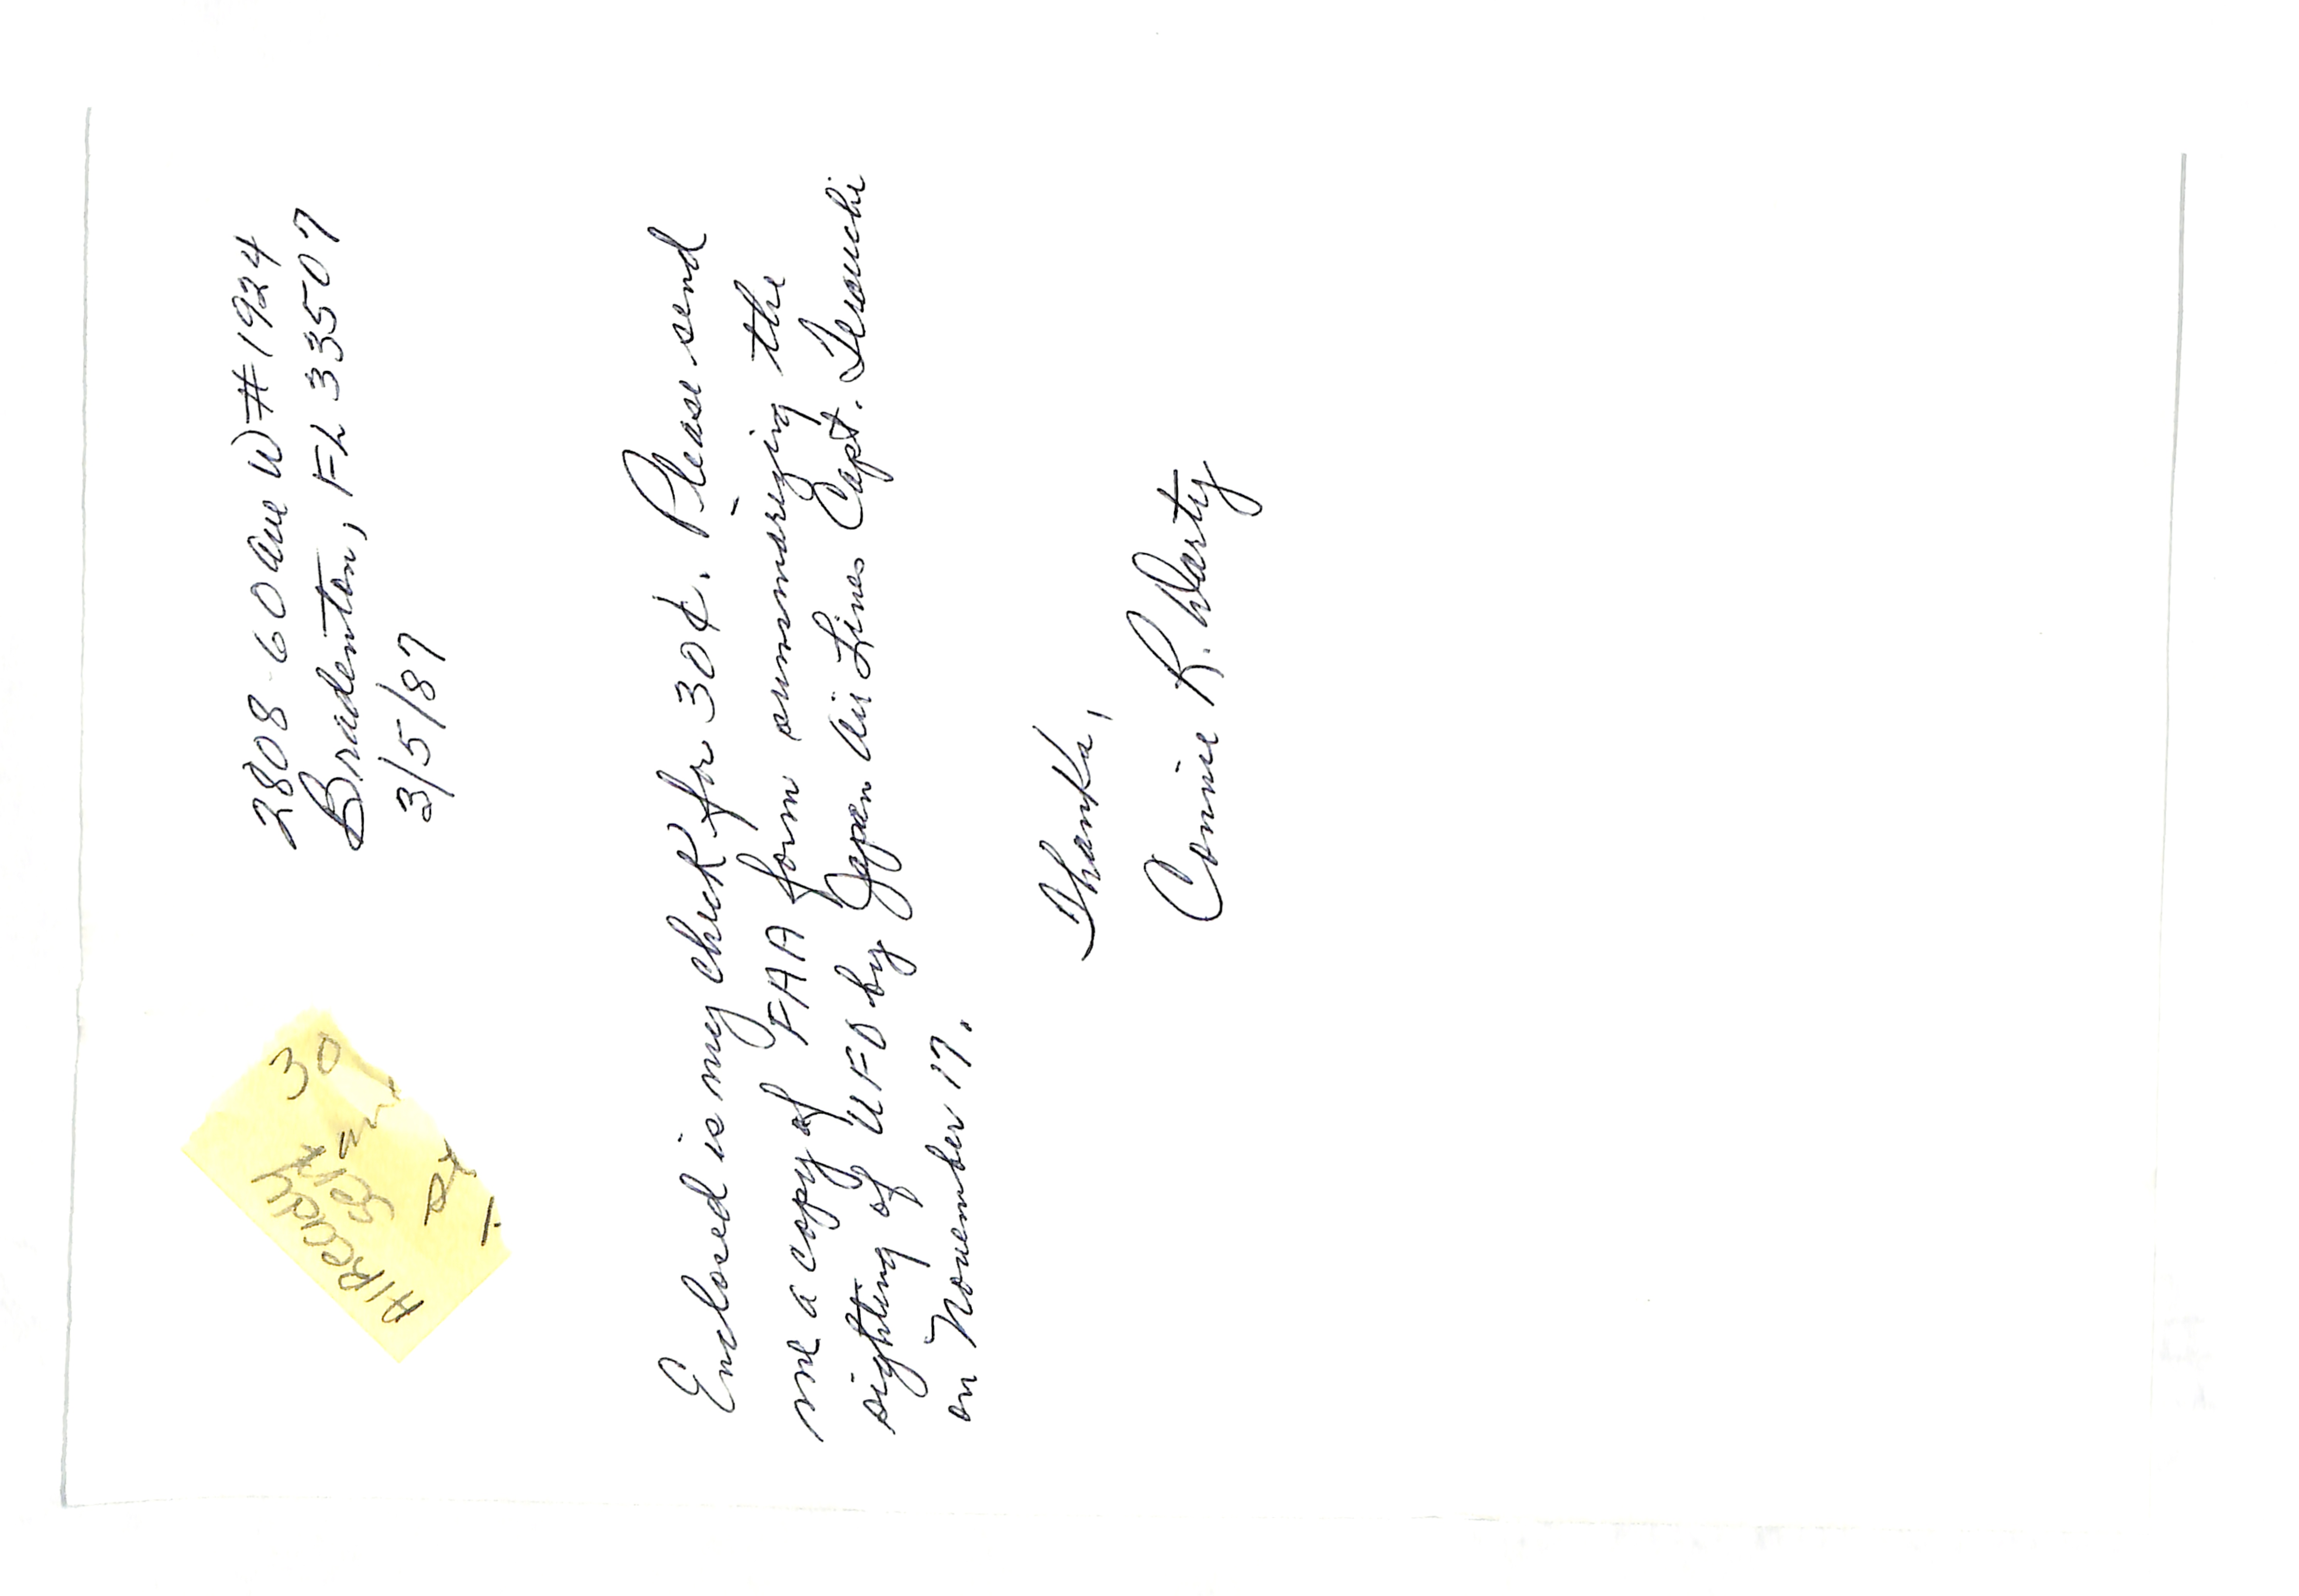 2808-60 Ave W #1924
Bradenton, FL 33507
3/5/87
Already 30
Sent
Enclosed is my check for 30¢. Please send
me a copy of FAA form summarizing the
sighting of UFO by Japan Air Lines Capt. Terauchi
on November 17.
Thanks,
Connie R. Warty